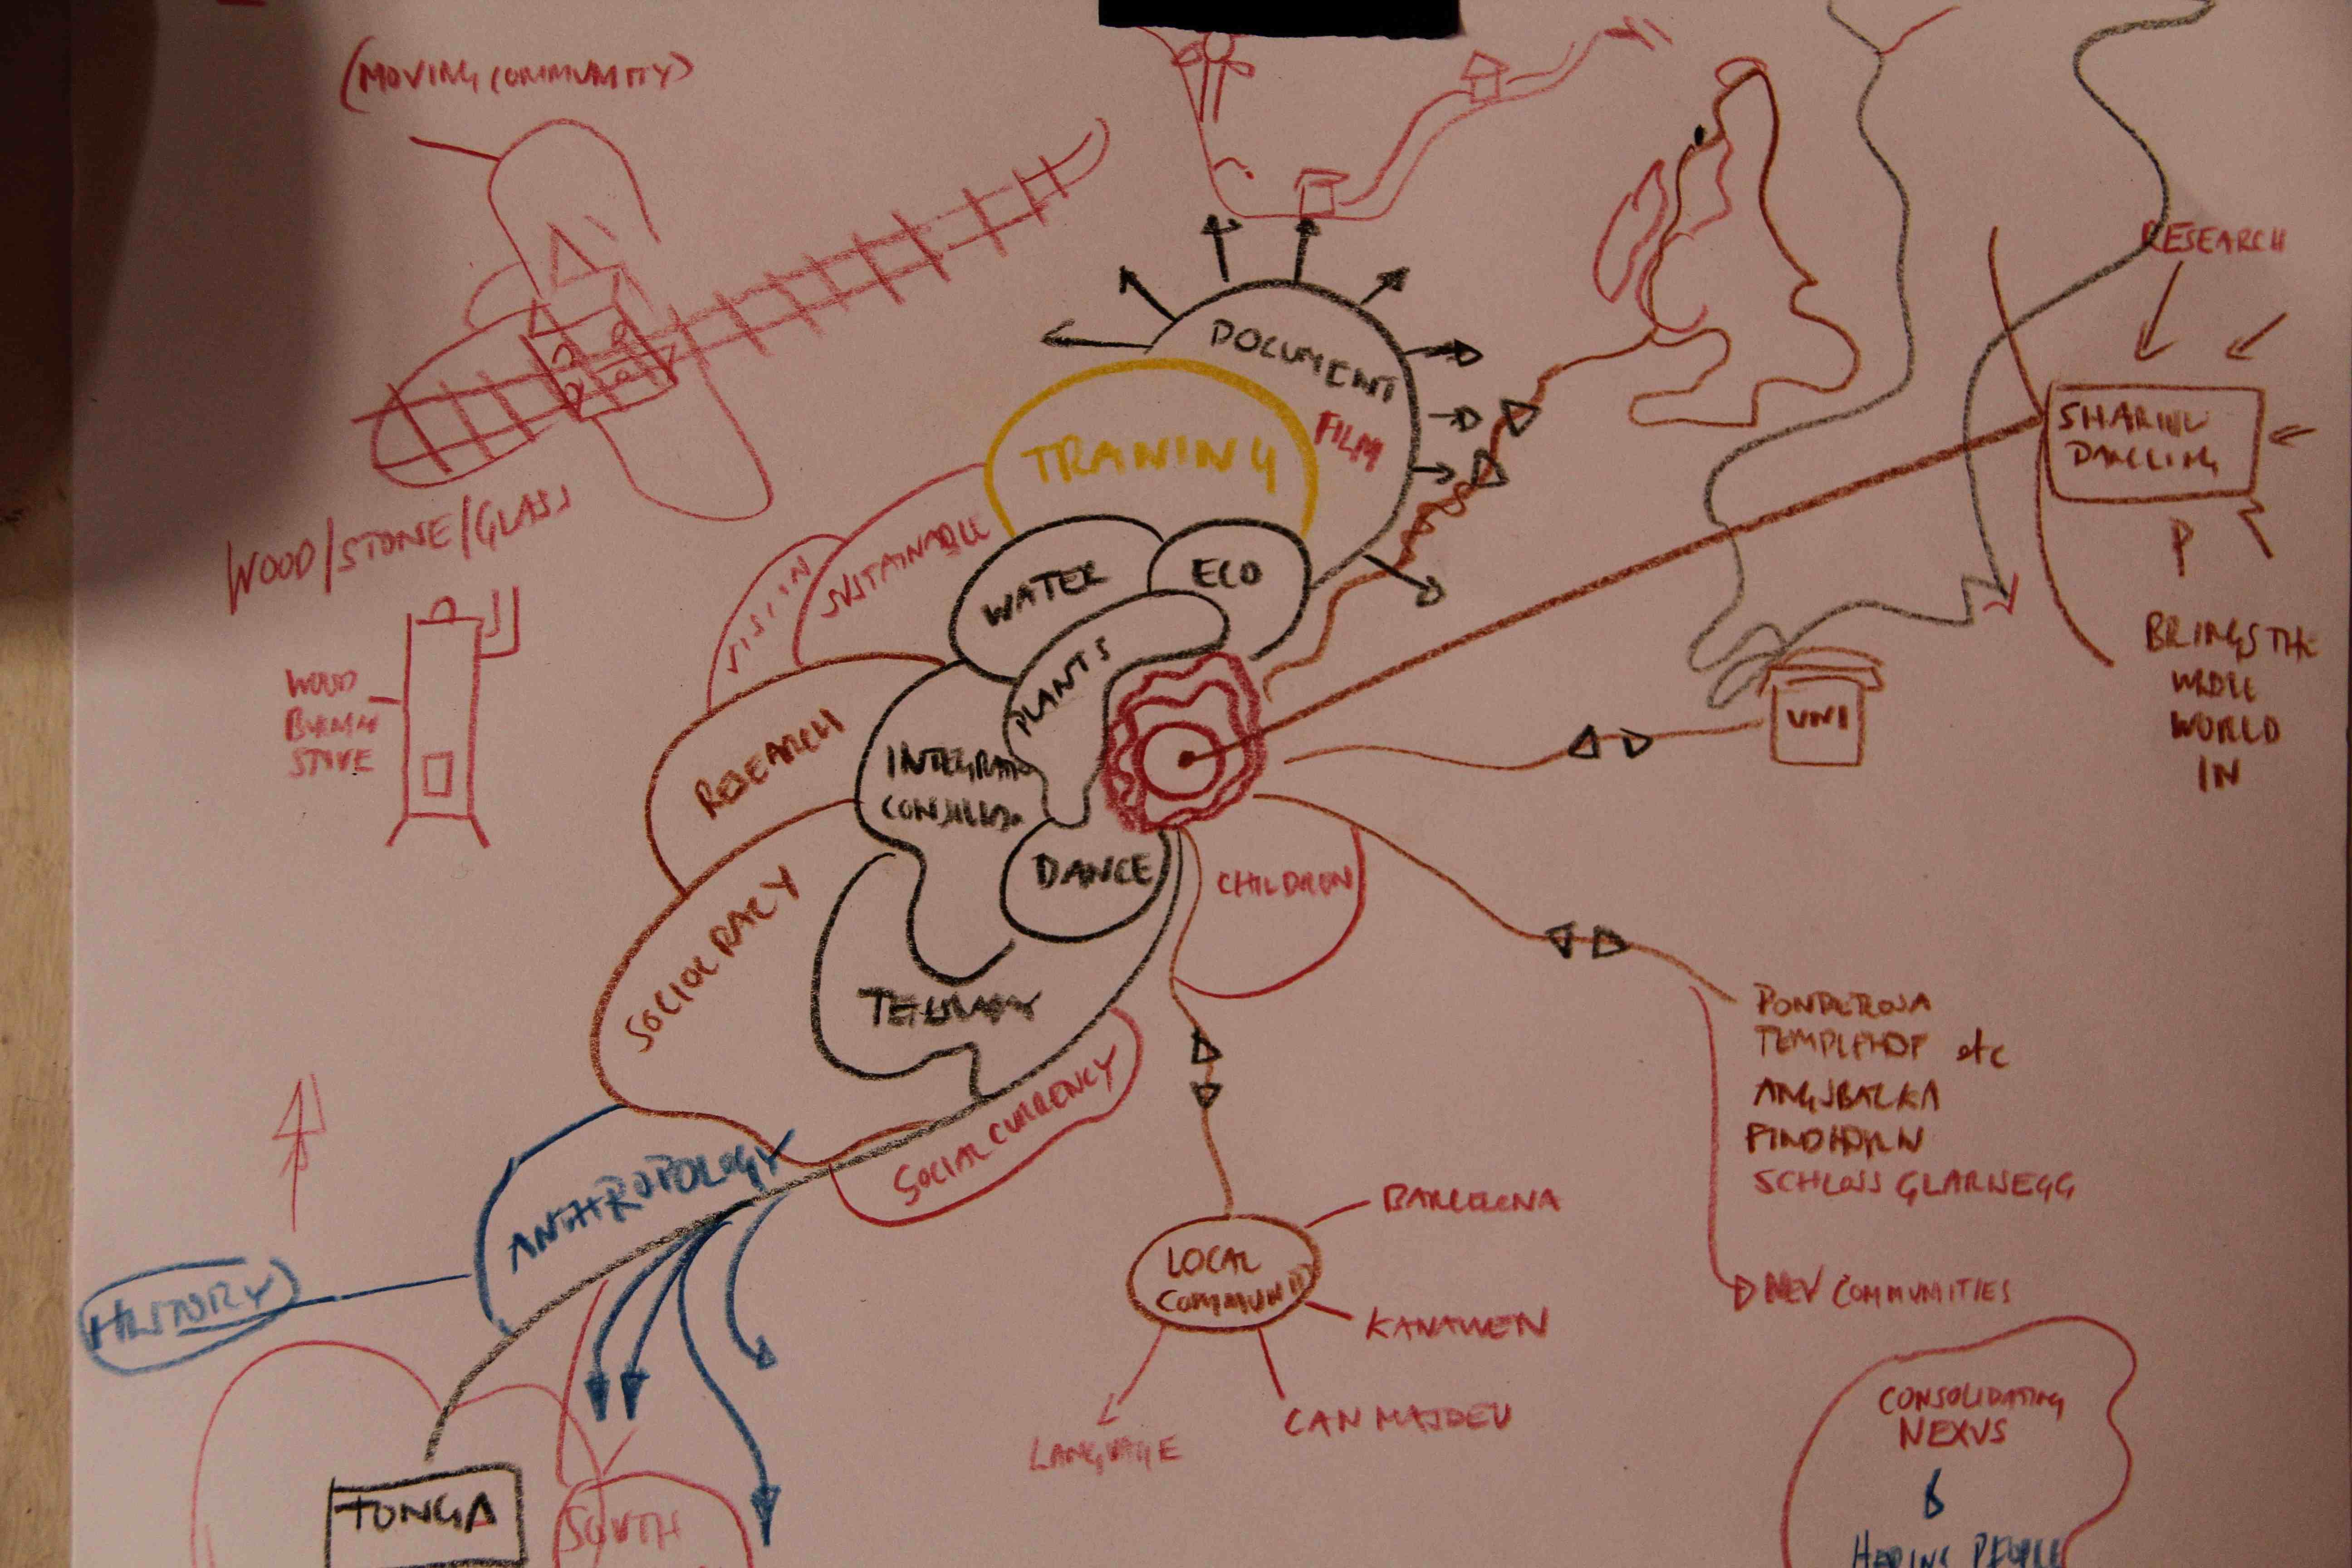 (MOVING COMMUNITY)
RESEARCH
DOCUMENT
FILM
TRAINING
SHARING
DANCING
WOOD/STONE/GLASS
SUSTAINABLE
VISION
WATER
ECO
P
BRINGS THE
WORLD
IN
PLANTS
WOOD
STOVE
UNI
RESEARCH
DANCE
CHILDREN
SOCIOCRACY
TEMPLEHOF etc
ANGSBACKA
FINDHORN
SCHLOSS GLARISEGG
SOCIAL CURRENCY
ANTHROPOLOGY
HISTORY
BARCELONA
LOCAL
KANAWEN
CAN MASDEU
LANGUAGE
NEW COMMUNITIES
CONSOLIDATING
NEXUS
&
PEOPLE
TONGA
SOUTH